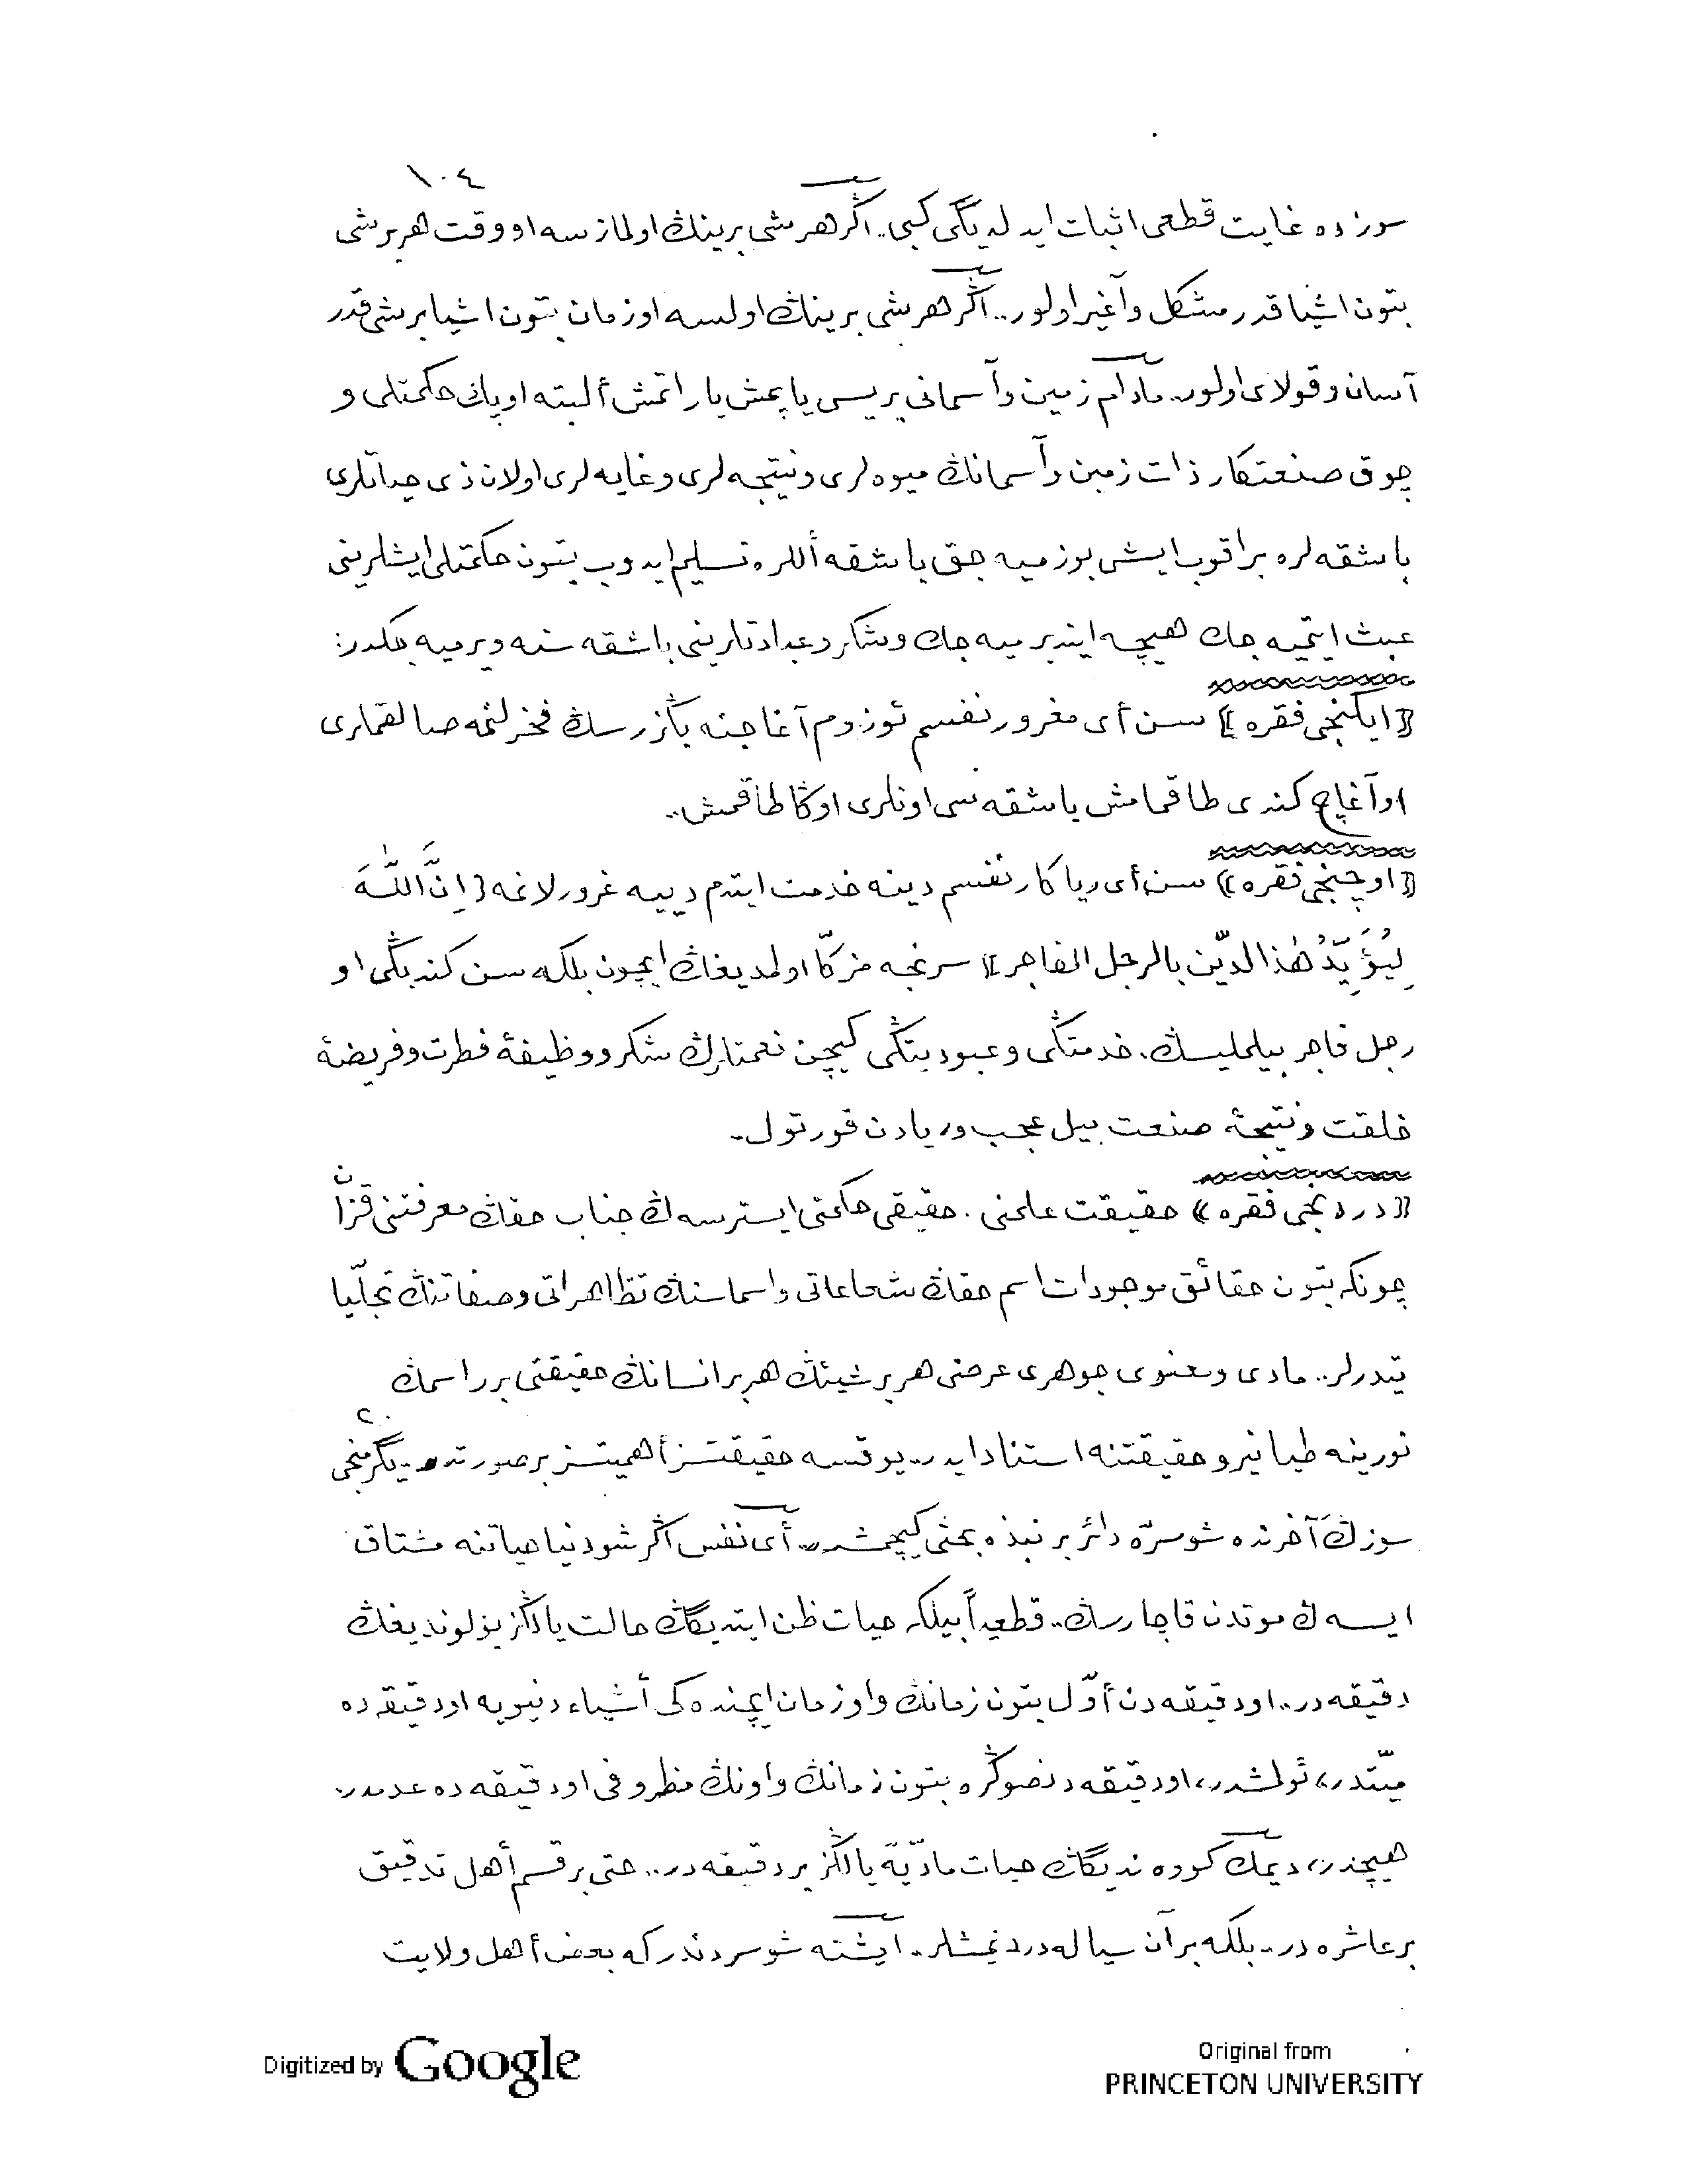 ١٠٤
سوزده غايت قطعى اثبات ايدلديگى كبى.. اڭر هر شى برينڭ اولمازسه او وقت هر بر شى
بتون اشيا قدر مشكل و آغير اولور.. اڭر هر شى برينڭ اولسه او زمان بتون اشيا بر شى قدر
آسان و قولاى اولور.. مادام زمين و آسمانى بريسى ياپمش ياراتمش ألبته او پك حكمتلى و
چوق صنعتكار ذات زمين و آسمانڭ ميوه لرى و نتيجه لرى و غايه لرى اولان ذى حياتلرى
باشقه لره براقوب ايشى بوزميه جق باشقه أللره تسليم ايدوب بتون حكمتلى ايشلرينى
عبث ايتميه جك هيچه اينديرميه جك و شكر و عبادتلرينى باشقه سنه ويرميه جكدر:
﴿ايكنجى فقره﴾ سن أى مغرور نفسم ئوزوم آغاجنه بڭزرسڭ فخرلنمه صالقملرى
او آغاج كندى طاقمامش باشقه سى اونلرى اوڭا طاقمش..
﴿اوچنجى فقره﴾ سن أى رياكار نفسم دينه خدمت ايتدم دييه غرورلانمه ﴿اِنَّ اللّٰهَ
لِيُؤَيِّدُ هٰذَا الدّين بالرجل الفاجر﴾ سرنجه مزكّا اولمديغڭ ايچون بلكه سن كنديڭى او
رجل فاجر بيلمليسڭ. خدمتڭى و عبوديتڭى كيچن نعمتلرڭ شكر و وظيفهٔ فطرت و فريضهٔ
خلقت و نتيجهٔ صنعت بيل عجب و ريادن قورتول..
﴿دردنجى فقره﴾ حقيقت علمنى. حقيقى حكمتى ايسترسه ڭ جناب حقڭ معرفتنى قزان
چونكه بتون حقائق موجودات اسم حقڭ شعاعاتى و اسماسنڭ تظاهراتى و صفاتنڭ تجلّيا
تيدرلر.. مادى و معنوى جوهرى عرضى هر بر شيئڭ هر بر انسانڭ حقيقتى برر اسمڭ
نورينه طيانير و حقيقتنه استناد ايدر.. يوقسه حقيقتسز أهميتسز بر صورتدر.. يگرمنجى
٢٠
سوزڭ آخرنده شو سرّه دائر بر نبذه بحثى كيچمشدر.. أى نفس اڭر شو دنيا حياتنه مشتاق
ايسه ڭ موتدن قاچارسڭ.. قطعياً بيلكه حيات ظن ايتديگڭ حالت يالڭز بولونديغڭ
دقيقه در.. او دقيقه دن أوّل بتون زمانڭ و او زمان ايچنده كى أشياء دنيويه او دقيقه ده
ميّتدر، ئولمشدر، او دقيقه دن صوڭره بتون زمانڭ و اونڭ مظروفى او دقيقه ده عدمدر.
هيچدر، ديمك گووه نديگڭ حيات مادّيّه يالڭز بر دقيقه در.. حتى بر قسم أهل تدقيق
بر عاشره در.. بلكه بر آن سياله در ديمشلر.. ايشته شو سردندر كه بعض أهل ولايت
Digitized by Google
Original from
PRINCETON UNIVERSITY